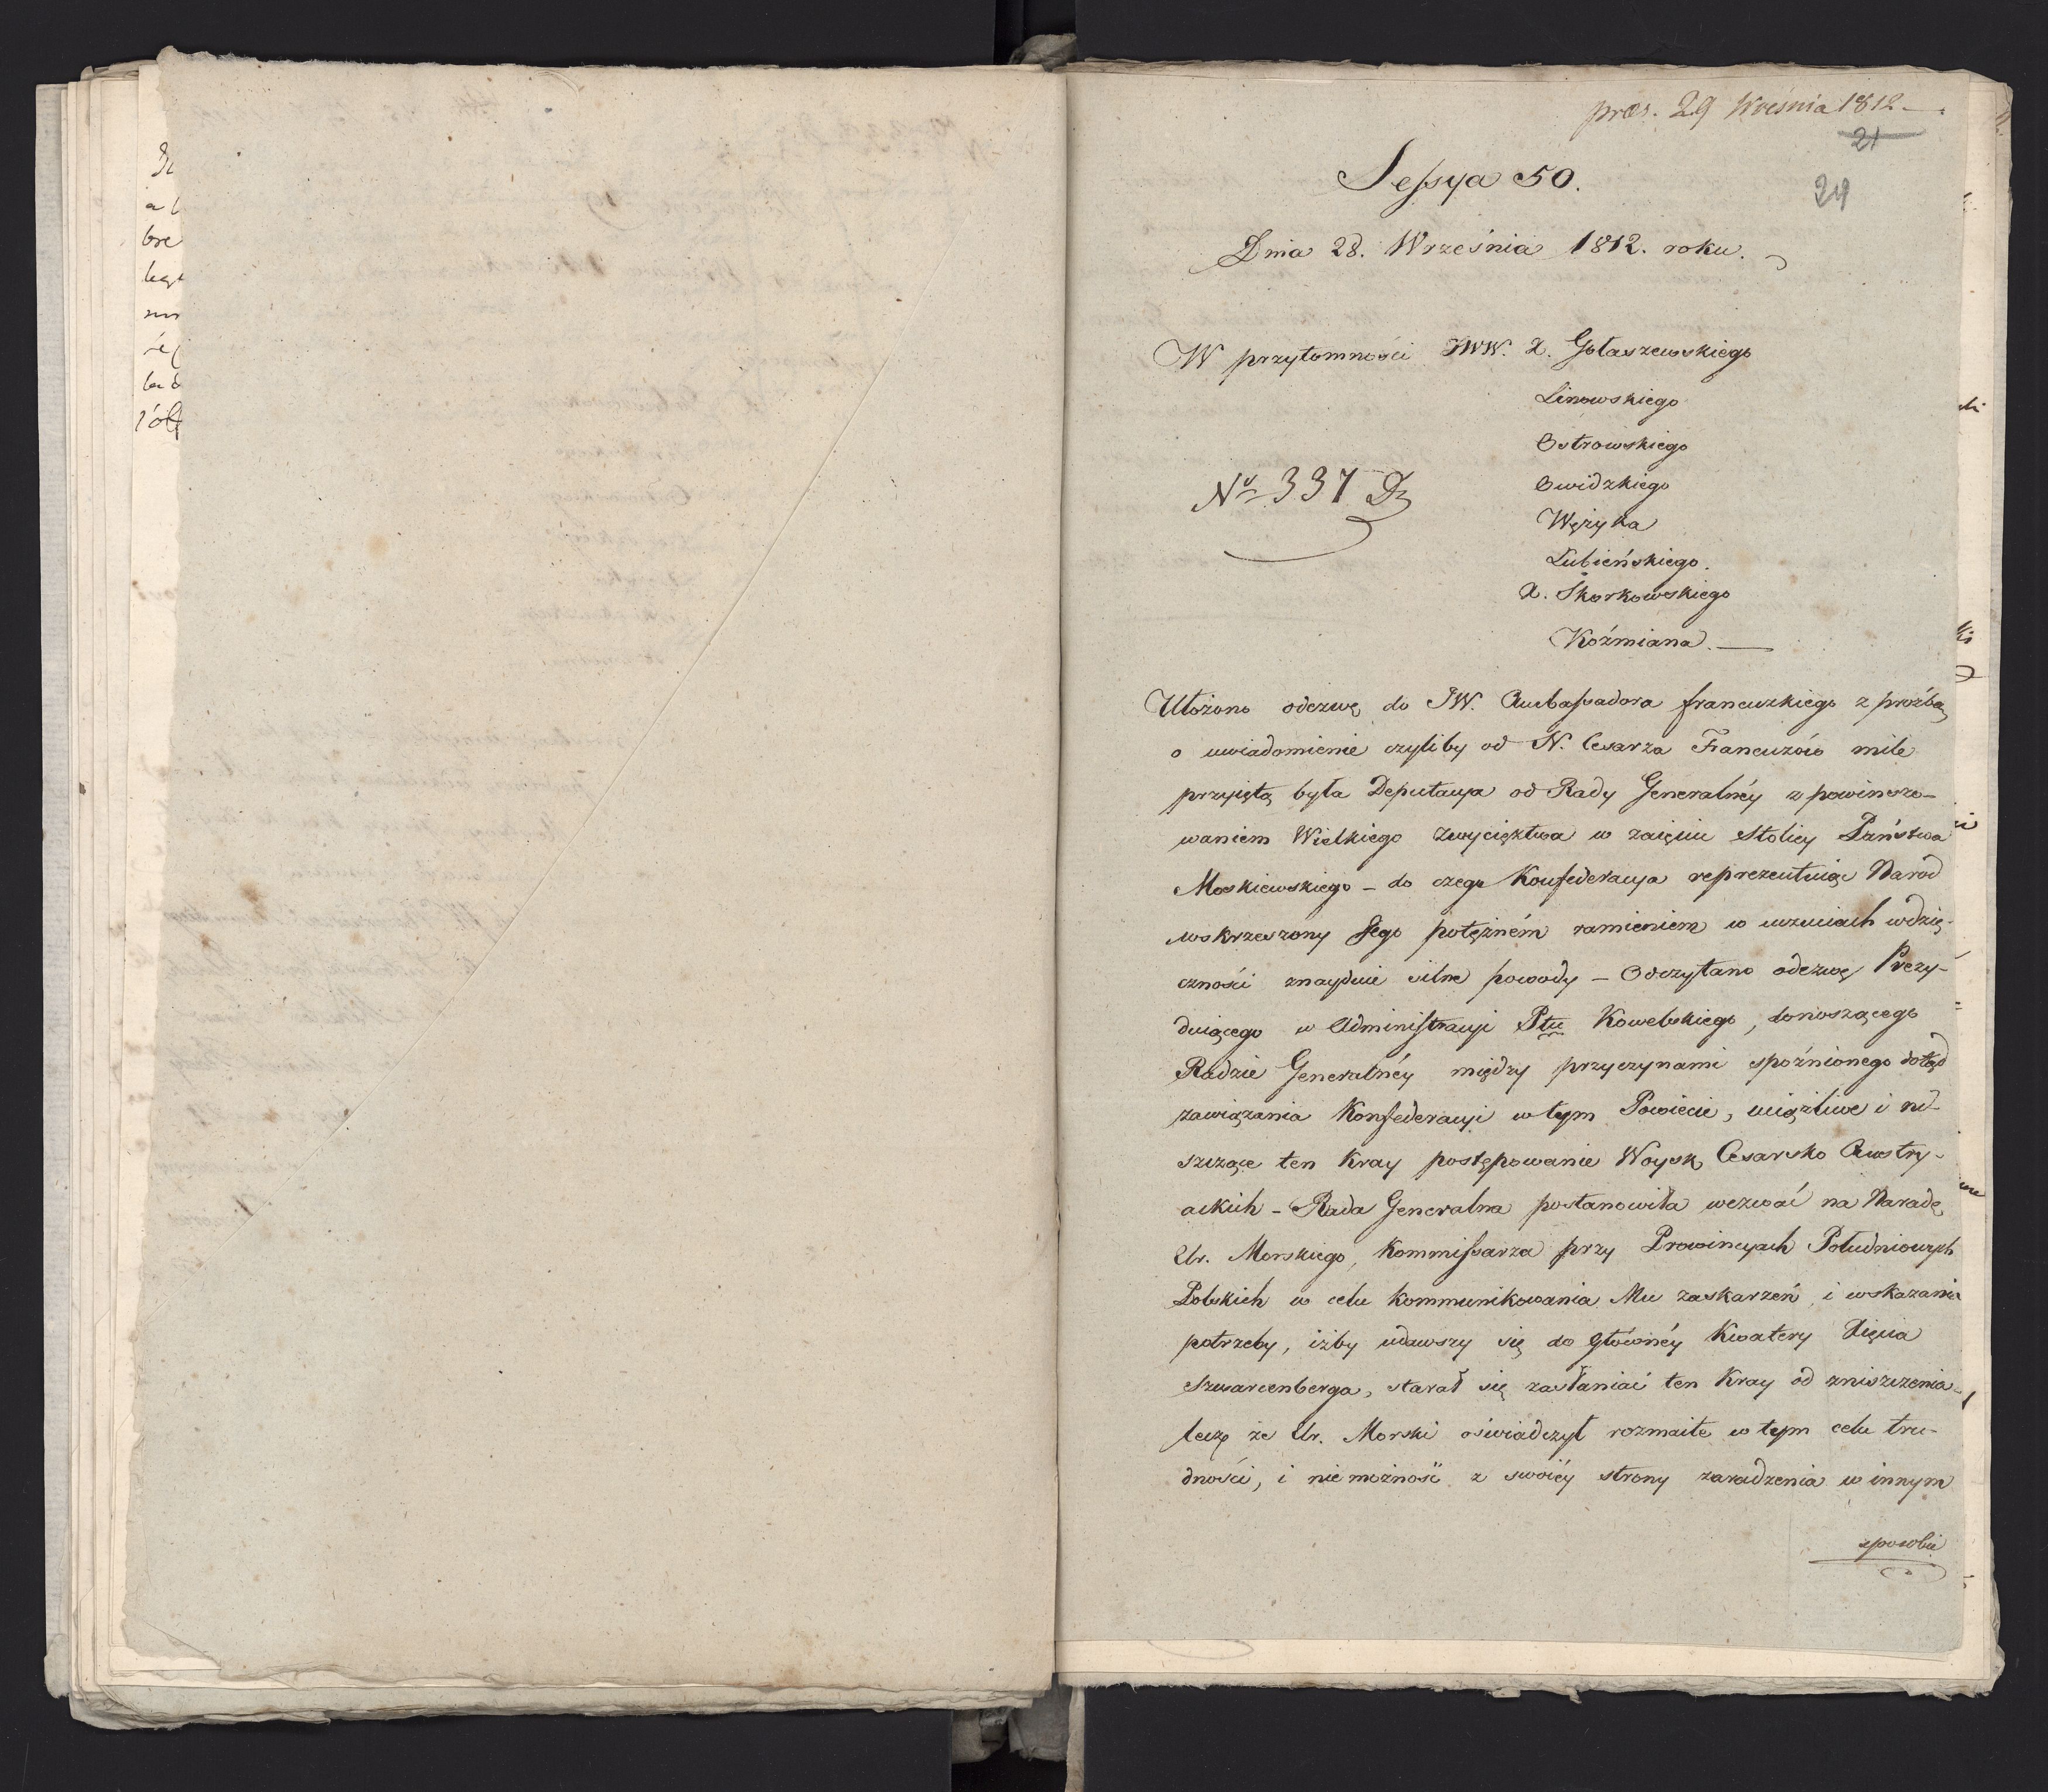 præs. 29 Września 1812
21
24
Sessya 50.
Dnia 28. Września 1812. roku.
W przytomności JWW. X. Gołaszewskiego
Linowskiego
Ostrowskiego
Owidzkiego
N° 337 Dz
Wężyka
Łubieńskiego.
X. Skorkowskiego
Koźmiana.
Ułożono odezwę do JW. Ambassadora francuzkiego z proźbą
o uwiadomienie czyliby od N. Cesarza Francuzów mile
przyiętą była Deputacya od Rady Generalnéy z powinszo-
waniem Wielkiego Zwycięztwa w zaięciu Stolicy Państwa
Moskiewskiego - do czego Konfederacya reprezentuiąc Naród
wskrzeszony Jego potężném ramieniem w uczuciach wdzię-
czności znayduie silne powody - Odczytano odezwę Prezy-
duiącego w Administracyi Ptu Kowelskiego, donoszącego
Radzie Generalnéy między przyczynami spoźnionego dotąd
zawiązania Konfederacyi w tym Powiecie, uciążliwe i ni-
szczące ten Kray postępowanie Woysk Cesarsko Austry-
ackich - Rada Generalna postanowiła wezwać na Naradę
Ur. Morskiego, Kommissarza przy Prowincyach Południowych
Polskich w celu kommunikowania Mu zaskarżeń, i wskazania
potrzeby, iżby udawszy się do głównéy Kwatery Xięcia
Szwarcenberga, starał się zasłaniać ten Kray od zniszczenia -
lecz że Ur. Morski oświadczył rozmaite w tym celu tru-
dności, i niemożność z swoiéy strony zaradzenia w innym
sposobie